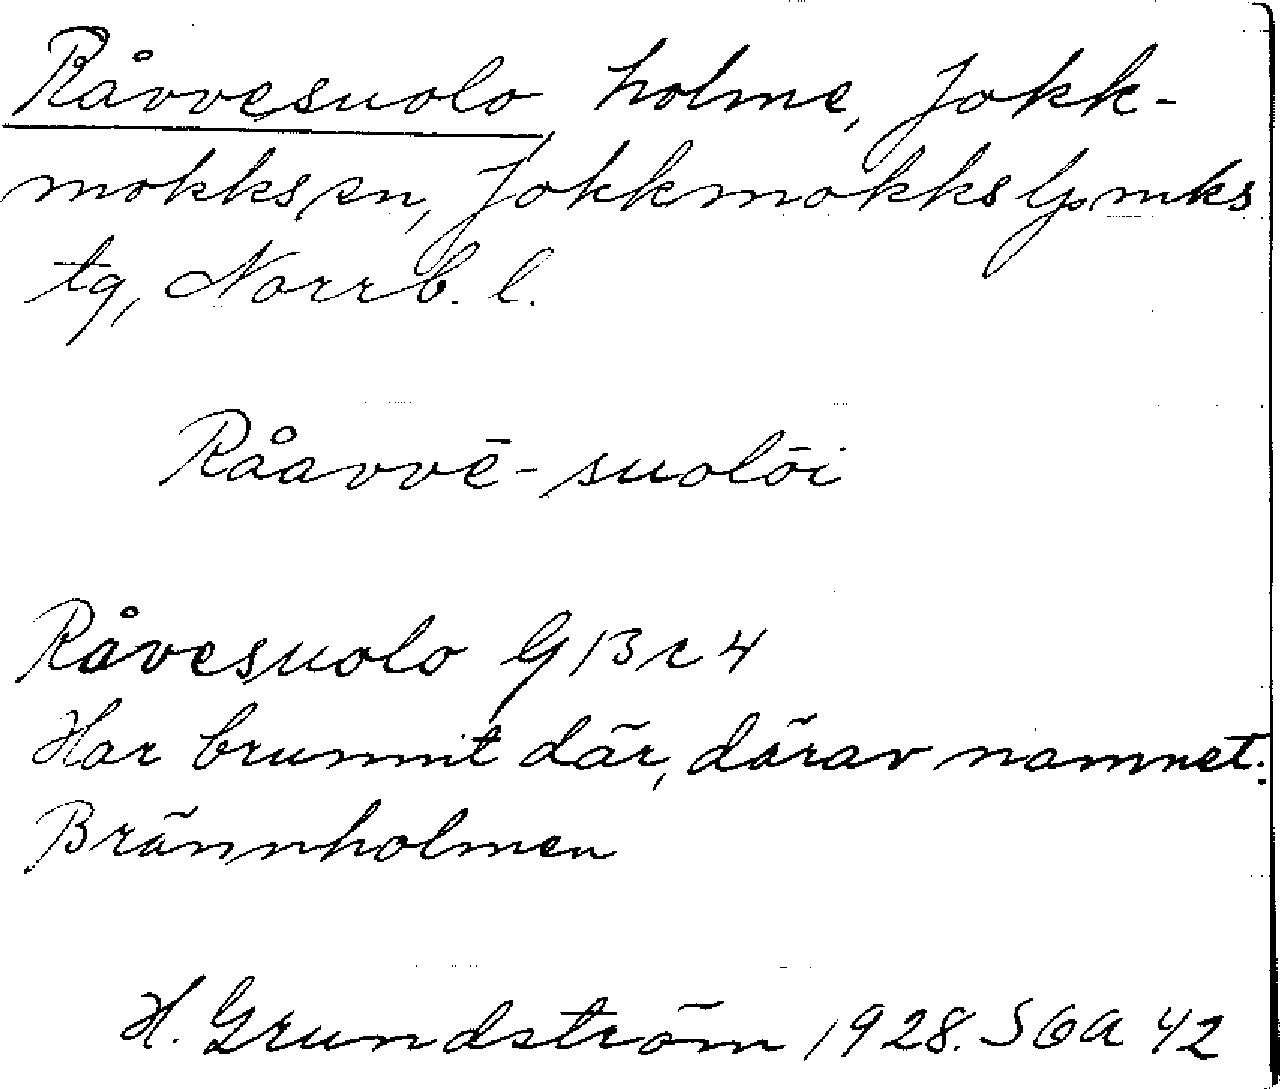 Råvvesuolo, holme, Jokk-
mokks sn, Jokkmokks lpmks
tg, Norrb. l.
Råavvē-suolōi
Råvesuolo G 13 c 4
Har brunnit där, därav namnet:
Brännholmen
H. Grundström 1928. SOA 42